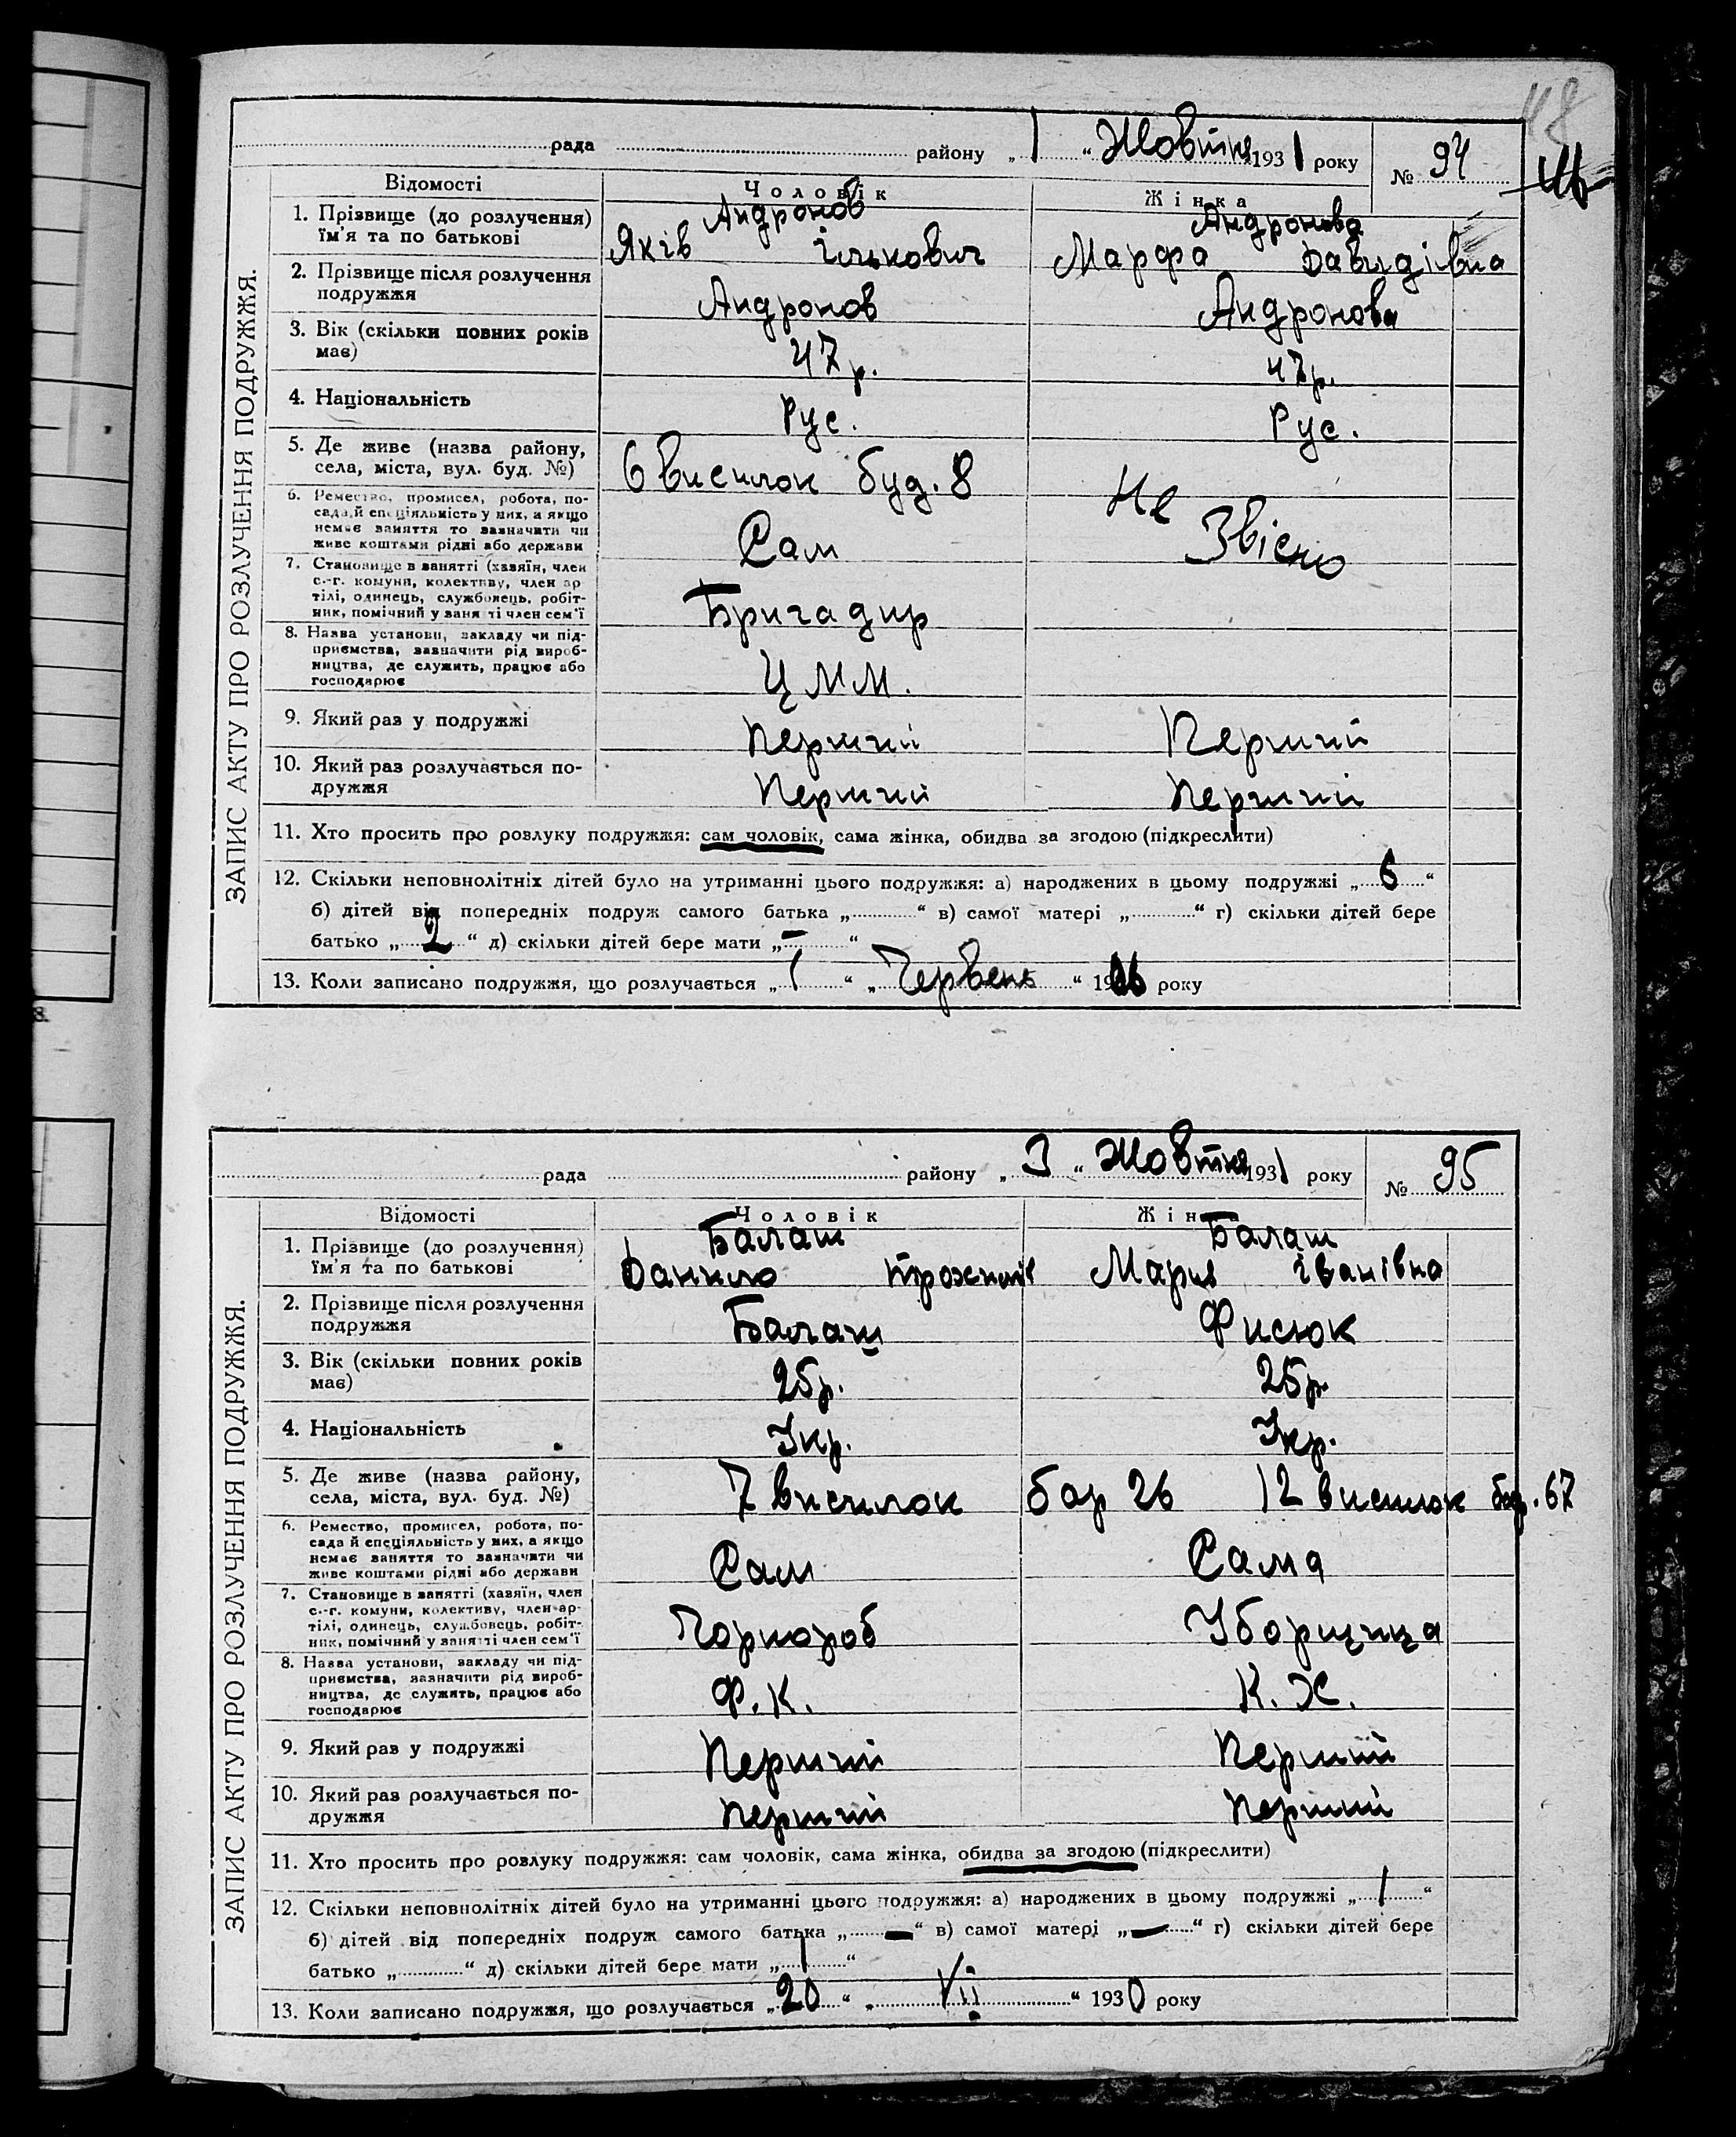 48
рада району „ 1 “ Жовтня 1931 року № 94
ЗАПИС АКТУ ПРО РОЗЛУЧЕННЯ ПОДРУЖЖЯ.
Відомості Чоловік Жінка
1. Прізвище (до розлучення) Андронов Андронова
їм'я та по батькові Яків Ількович Марфа Давидівна
2. Прізвище після розлучення
подружжя Андронов Андронова
3. Вік (скільки повних років
має) 47 р. 47 р.
4. Національність Рус. Рус.
5. Де живе (назва району,
села, міста, вул. буд. №) 6 висилок буд. 8 Не
6. Ремество, промисел, робота, по-
сада й спеціяльність у них, а якщо
немає заняття то зазначити чи
живе коштами рідні або держави Сам Звісно
7. Становище в занятті (хазяїн, член
с.-г. комуни, колективу, член ар-
тілі, одинець, службовець, робіт-
ник, помічний у занятті член сем'ї Бригадир
8. Назва установи, закладу чи під-
приємства, зазначити рід вироб-
ництва, де служить, працює або
господарює Ц М М.
9. Який раз у подружжі Перший Перший
10. Який раз розлучається по-
дружжя Перший Перший
11. Хто просить про розлуку подружжя: сам чоловік, сама жінка, обидва за згодою (підкреслити)
12. Скільки неповнолітніх дітей було на утриманні цього подружжя: а) народжених в цьому подружжі „ 6 “
б) дітей від попередніх подруж самого батька „ “ в) самої матері „ “ г) скільки дітей бере
батько „ 2 “ д) скільки дітей бере мати „ – “
13. Коли записано подружжя, що розлучається „ 1 “ „ Червень “ 19 року
рада району „ 3 “ Жовтня 1931 року № 95
ЗАПИС АКТУ ПРО РОЗЛУЧЕННЯ ПОДРУЖЖЯ.
Відомості Чоловік Жінка
1. Прізвище (до розлучення) Балаш Балаш
їм'я та по батькові Данило Марія Іванівна
2. Прізвище після розлучення
подружжя Балаш Фисюк
3. Вік (скільки повних років
має) 25р. 25р.
4. Національність Укр. Укр.
5. Де живе (назва району,
села, міста, вул. буд. №) 7 висилок бар 26 12 висилок бар. 67
6. Ремество, промисел, робота, по-
сада й спеціяльність у них, а якщо
немає заняття то зазначити чи
живе коштами рідні або держави Сам Сама
7. Становище в занятті (хазяїн, член
с.-г. комуни, колективу, член ар-
тілі, одинець, службовець, робіт-
ник, помічний у занятті член сем'ї Чорнороб Уборщица
8. Назва установи, закладу чи під-
приємства, зазначити рід вироб-
ництва, де служить, працює або
господарює Ф. К. К. Х.
9. Який раз у подружжі Перший Перший
10. Який раз розлучається по-
дружжя Перший Перший
11. Хто просить про розлуку подружжя: сам чоловік, сама жінка, обидва за згодою (підкреслити)
12. Скільки неповнолітніх дітей було на утриманні цього подружжя: а) народжених в цьому подружжі „ 1 “
б) дітей від попередніх подруж самого батька „ – “ в) самої матері „ – “ г) скільки дітей бере
батько „ “ д) скільки дітей бере мати „ 1 “
13. Коли записано подружжя, що розлучається „ 20 “ „ VII “ 1930 року